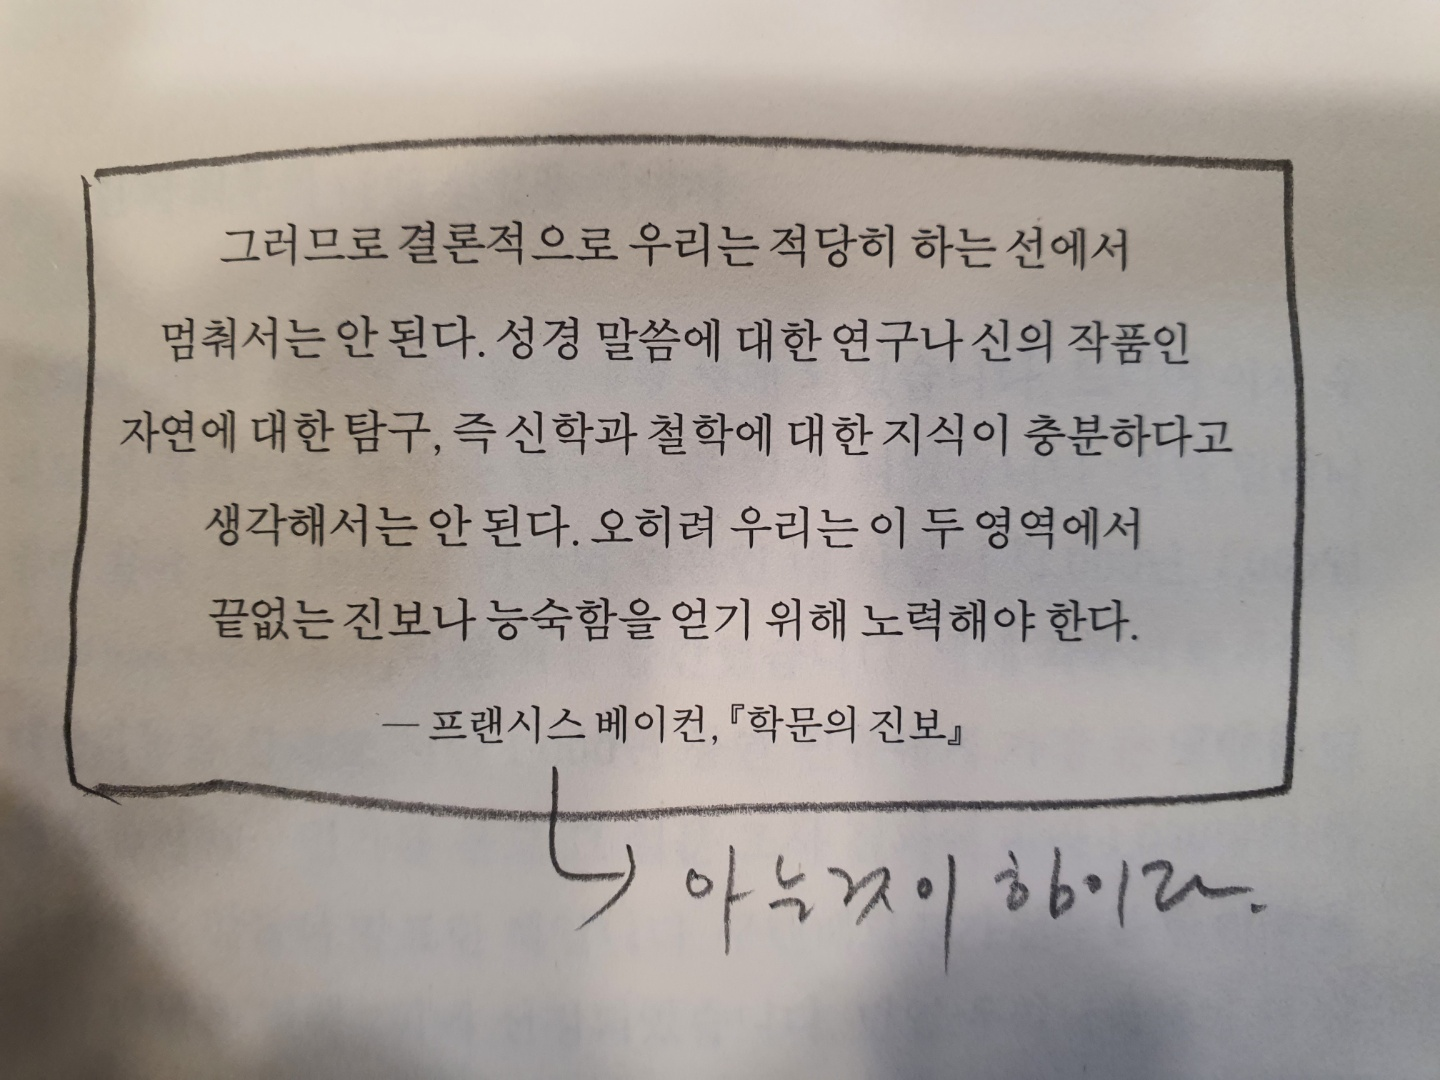 그러므로 결론적으로 우리는 적당히 하는 선에서
멈춰서는 안 된다. 성경 말씀에 대한 연구나 신의 작품인
자연에 대한 탐구, 즉 신학과 철학에 대한 지식이 충분하다고
생각해서는 안 된다. 오히려 우리는 이 두 영역에서
끝없는 진보나 능숙함을 얻기 위해 노력해야 한다.
— 프랜시스 베이컨, 『학문의 진보』
아는것이 힘이라.